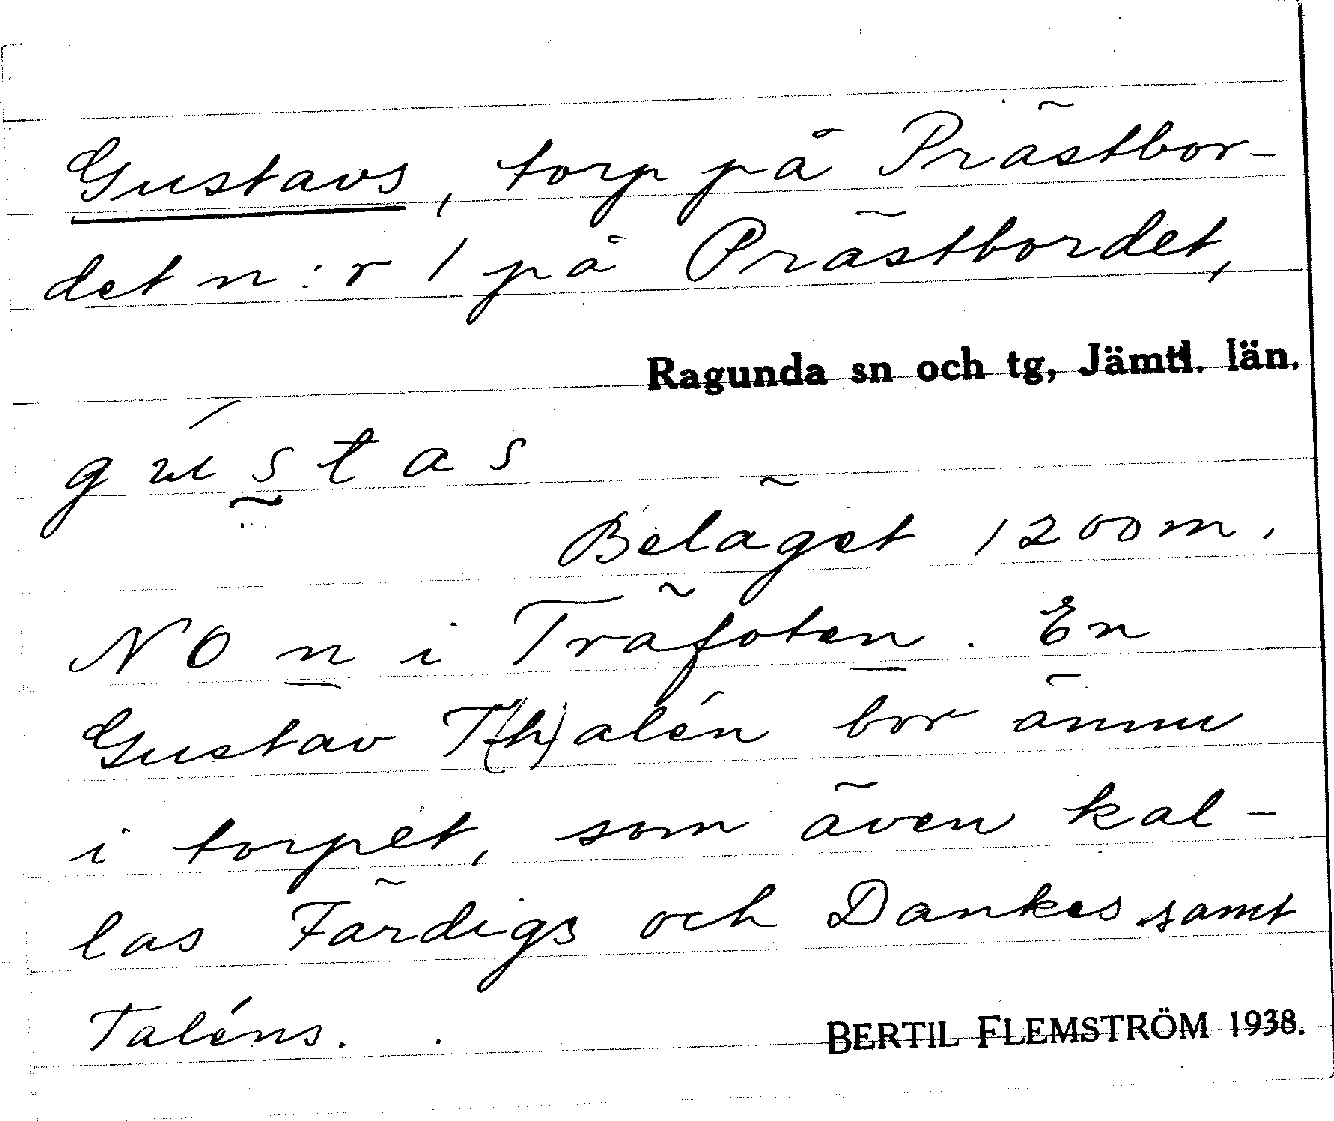 Gustavs, torp på Prästbor-
det n:r 1 på Prästbordet,
Ragunda sn och tg, Jämtl. län.
gústas
Beläget 1200 m.
NO n i Träfoten. En
Gustav T(h)alén bor ännu
i torpet, som även kal-
las Färdigs och Dankes samt
Taléns.
BERTIL FLEMSTRÖM 1938.